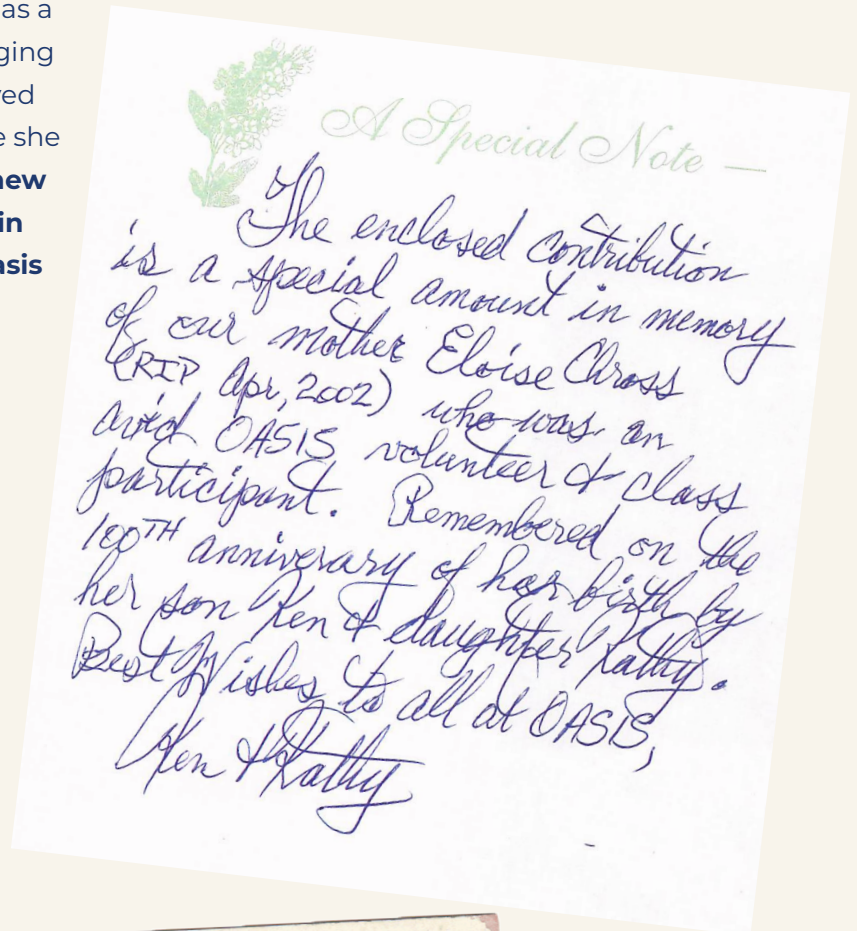 as a
ging
ed
e she
new
in
asis
A Special Note —
The enclosed contribution
is a special amount in memory
of our mother Eloise Chross
(RIP Apr, 2002) who was an
avid OASIS volunteer & class
participant. Remembered on the
100TH anniverary of her birth by
her son Ken & daughter Kathy.
Best Wishes to all at OASIS,
Ken & Kathy